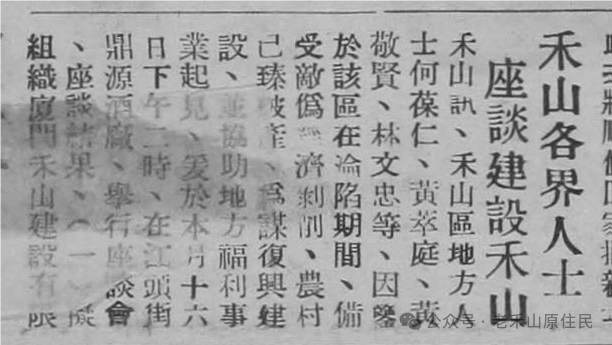 禾山各界人士
座談建設禾山
禾山訊、禾山區地方人
士何葆仁、黃萃庭、黃
敬賢、林文忠等、因鑒
於該區在淪陷期間、備
受敵偽經濟剝削、農村
已臻破產、為謀復興建
設、並協助地方福利事
業起見、爰於本月十六
日下午二時、在江頭街
鼎源酒廠、舉行座談會
、座談結果、(一)擬
組織廈門禾山建設有限
公众号·老禾山原住民